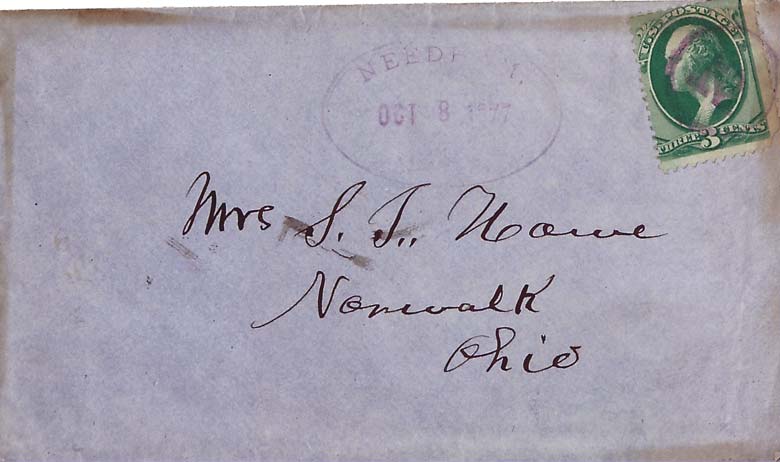 OCT 8 1877
U.S. POSTAGE
THREE 3 CENTS
Mrs S. T. Howe
Norwalk
Ohio